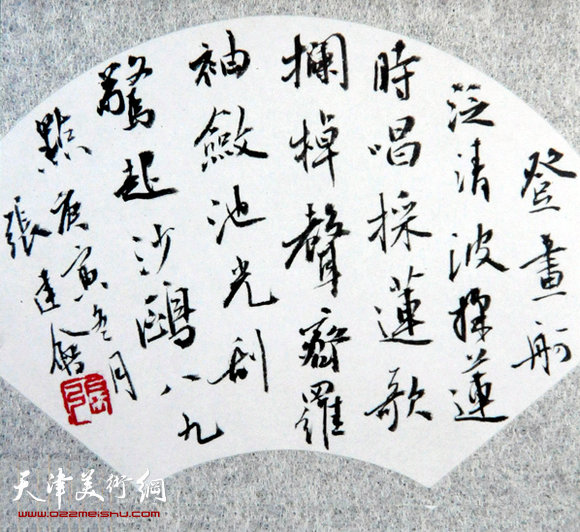 登畫舸
泛清波採蓮
時唱採蓮歌
攔棹聲齊羅
袖斂池光刮
驚起沙鷗八九
點庚寅冬月
張建會
天津美術網
www.022meishu.com